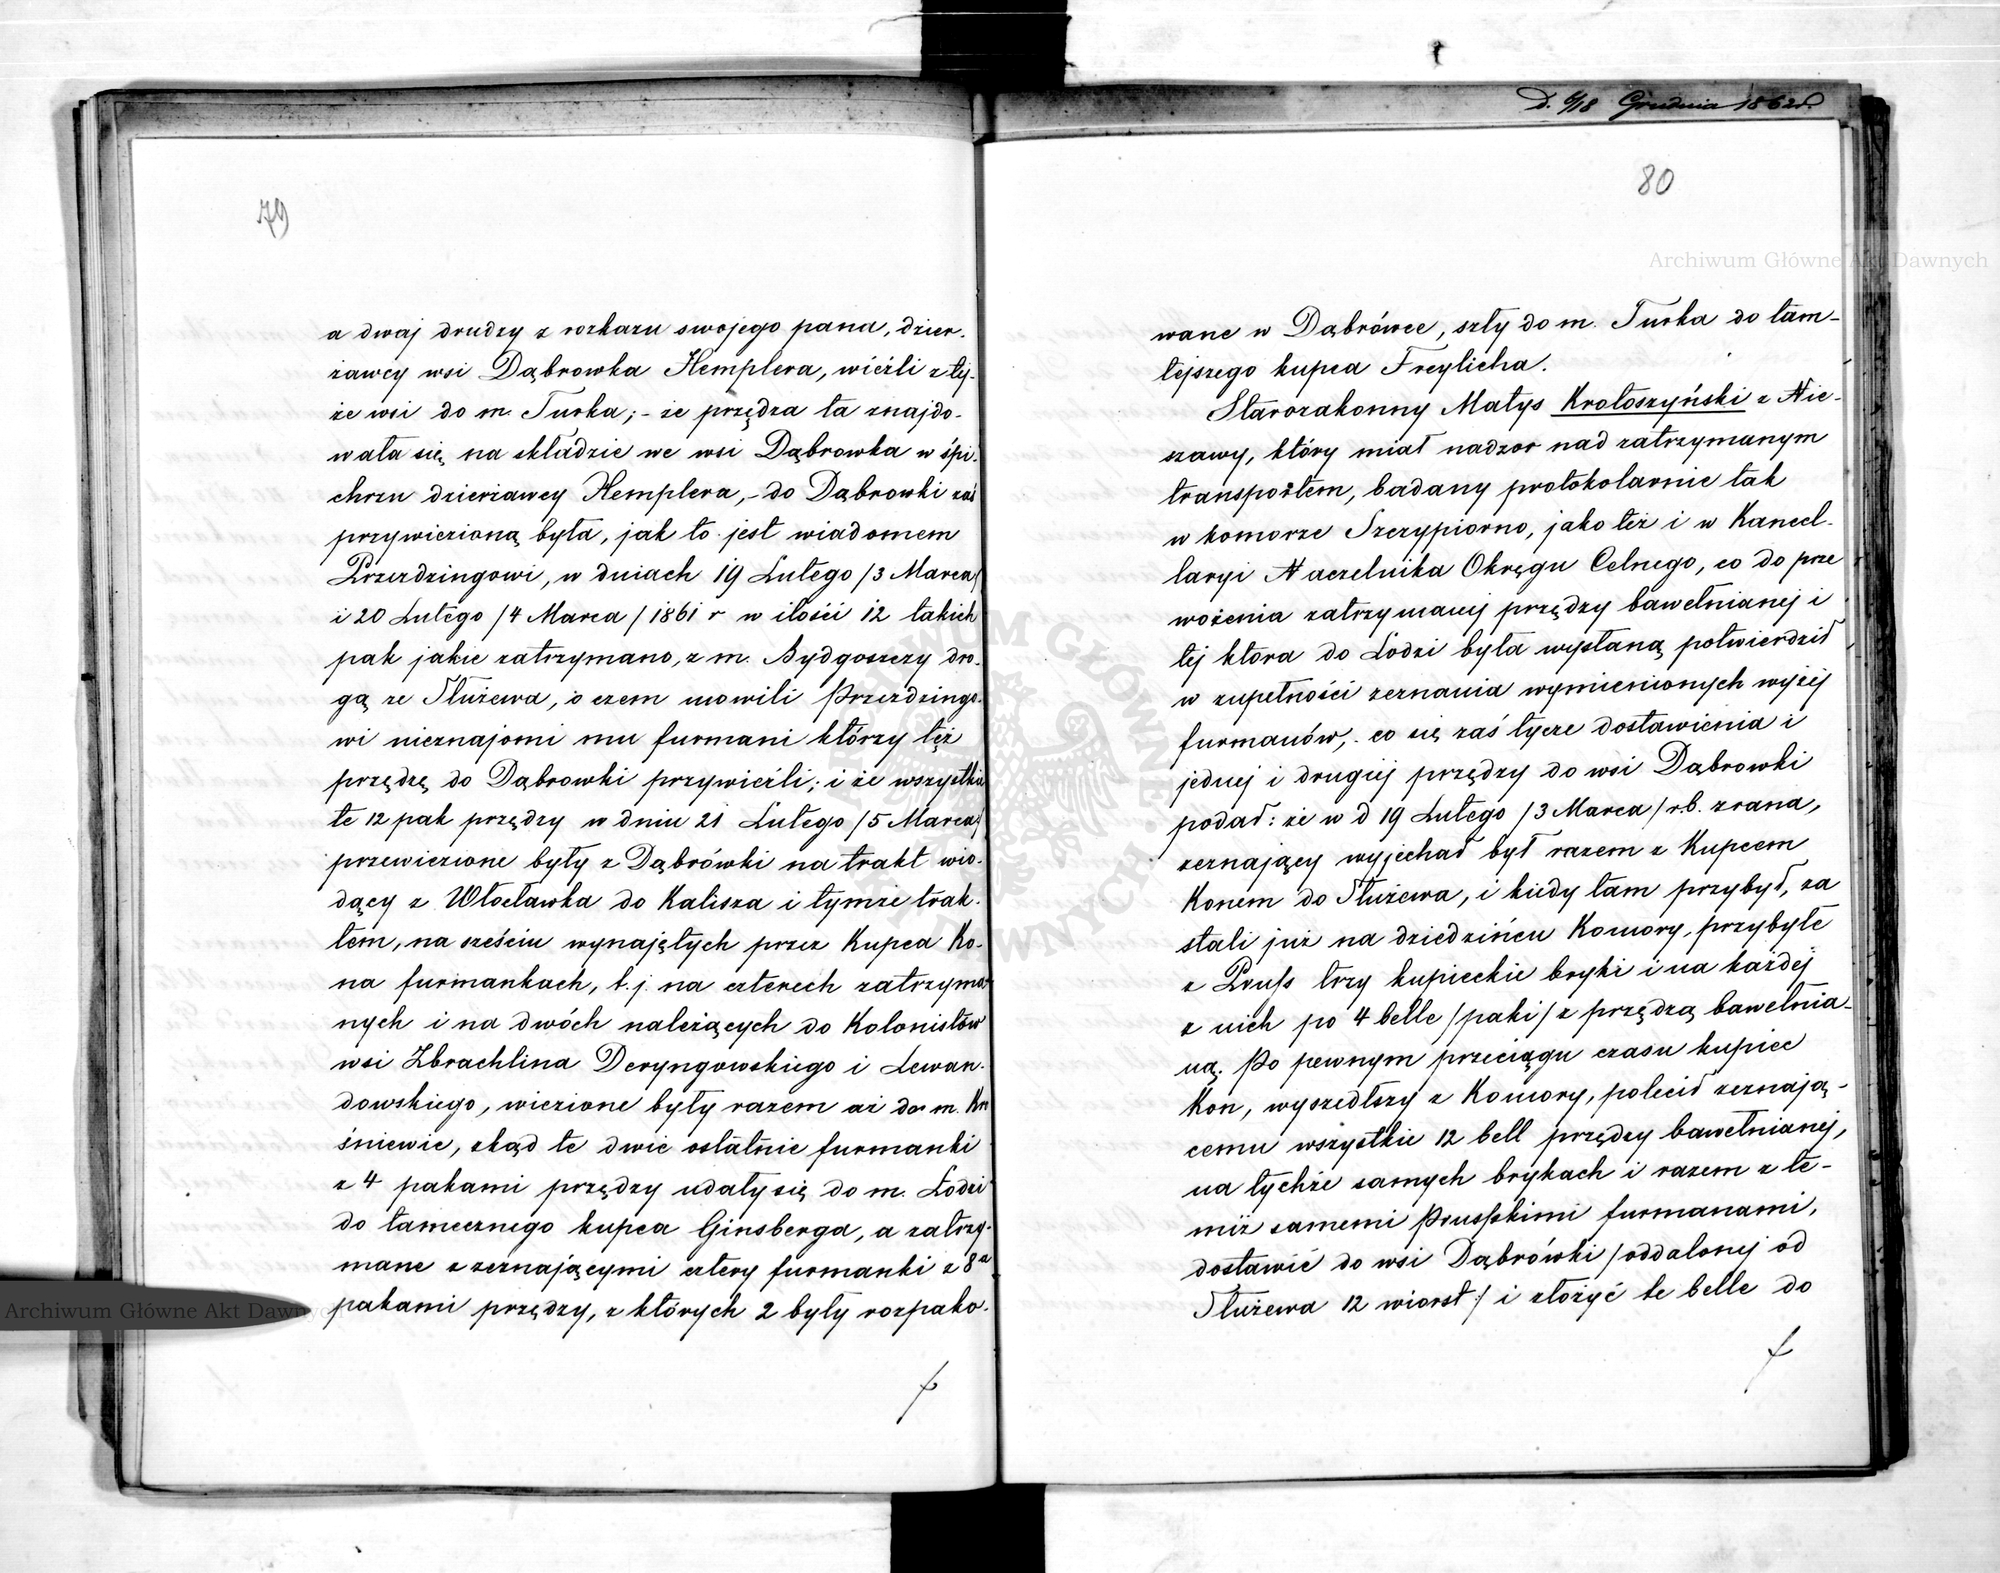 79
a dwaj drudzy z rozkazu swojego pana, dzier-
żawcy wsi Dąbrowka Hemplera, wieźli z tej-
że wsi do m. Turka; - że przędza ta znajdo-
wała się na składzie we wsi Dąbrowka w śpi-
chrzu dzierżawcy Hemplera, - do Dąbrowki zaś
przywiezioną była, jak to jest wiadomem
Przerdzingowi, w dniach 19 Lutego /3 Marca/
i 20 Lutego /4 Marca/ 1861 r w ilości 12 takich
pak jakie zatrzymano, z m. Bydgoszczy dro-
gą ze Służewa, o czem mowili Przerdzingo-
wi nieznajomi mu furmani którzy też
przędzę do Dąbrowki przywieźli; i że wszystkie
te 12 pak przędzy w dniu 21 Lutego /5 Marca/
przewiezione były z Dąbrówki na trakt wio-
dący z Włocławka do Kalisza i tymże trak-
tem, na sześciu wynajętych przez Kupca Ko-
na furmankach, t.j. na czterech zatrzyma-
nych i na dwóch należących do Kolonistów
wsi Zbrachlina Deryngowskiego i Lewan-
dowskiego, wiezione były razem aż do m. Kro
śniewic, skąd te dwie ostatnie furmanki
z 4 pakami przędzy udały się do m. Łodzi
do tamecznego kupca Ginsberga, a zatrzy-
mane z zeznającymi cztery furmanki z 8ᵃ
pakami przędzy, z których 2 były rozpako-
d. 6/18 Grudnia 1862 r.
80
Archiwum Główne Akt Dawnych
wane w Dąbrówce, szły do m. Turka do tam-
tejszego kupca Freylicha.
Starozakonny Matys Krotoszyński z Nie-
szawy, który miał nadzor nad zatrzymanym
transportem, badany protokolarnie tak
w komorze Szczypiorno, jako też i w Kancel-
laryi Naczelnika Okręgu Celnego, co do prze
wożenia zatrzymanej przędzy bawełnianej i
tej ktora do Łodzi była wysłaną potwierdził
w zupełności zeznania wymienionych wyżej
furmanów, - co się zaś tycze dostawienia i
jednej i drugiej przędzy do wsi Dąbrowki
podał: że w d 19 Lutego /3 Marca/ r.b. zrana,
zeznający wyjechał był razem z Kupcem
Konem do Służewa, i kiedy tam przybył, za
stali już na dziedzińcu Komory, przybyłe
z Pruss trzy kupieckie bryki i na każdej
z nich po 4 belle /paki/ z przędzą bawełnia-
ną. Po pewnym przeciągu czasu kupiec
Kon, wyszedłszy z Komory, polecił zeznają-
cemu wszystkie 12 bell przędzy bawełnianej,
na tychże samych brykach i razem z te-
miż samemi Prusskimi furmanami,
dostawić do wsi Dąbrówki /oddalonej od
Służewa 12 wiorst/ i złożyć te belle do
Archiwum Główne Akt Dawnych